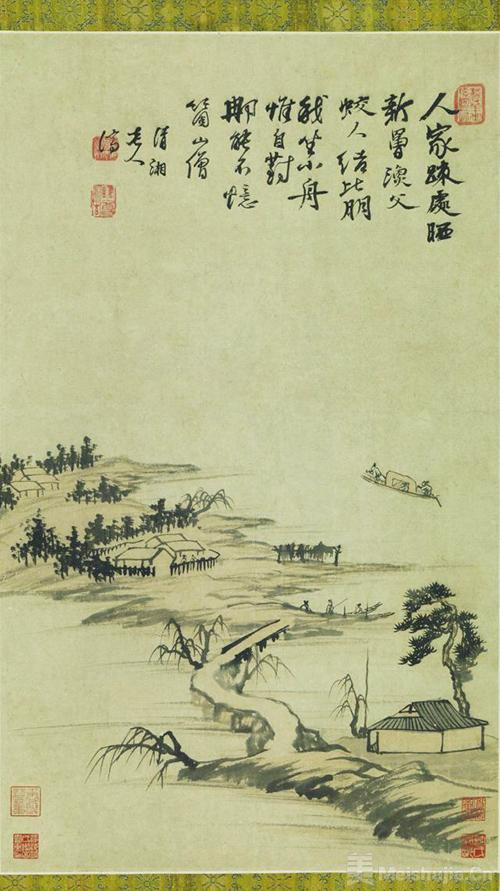 人家踈處晒
新罾漁父
蛟人結比朋
我坐小舟
惟自對
那能不憶
箇山僧
清湘
老人
濟
美 Meishujia.Cn